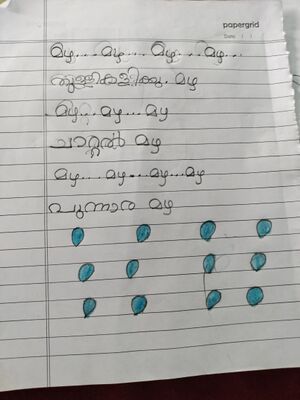 papergrid
Date : / /
മഴ....മഴ....മഴ....മഴ...
തുള്ളികളിക്കും മഴ
മഴ...മഴ...മഴ
ചാറ്റൽ മഴ
മഴ... മഴ...മഴ...മഴ
പുന്നാര മഴ